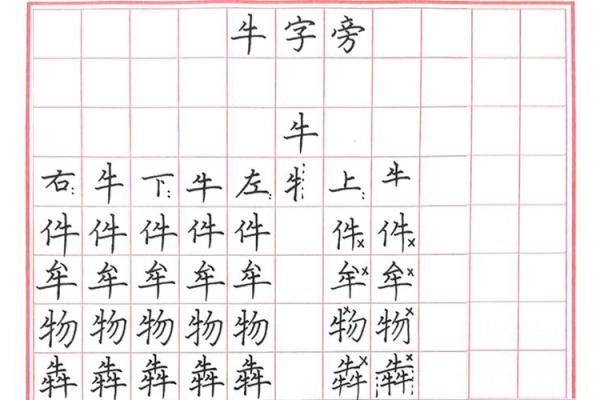 牛字旁
牛
右: 牛 下: 牛 左: 牜 上: 牛
件 件 件 件 件 件 件
牟 牟 牟 牟 牟 牟 牟
物 物 物 物 物 物 物
犇 犇 犇 犇 犇 犇 犇